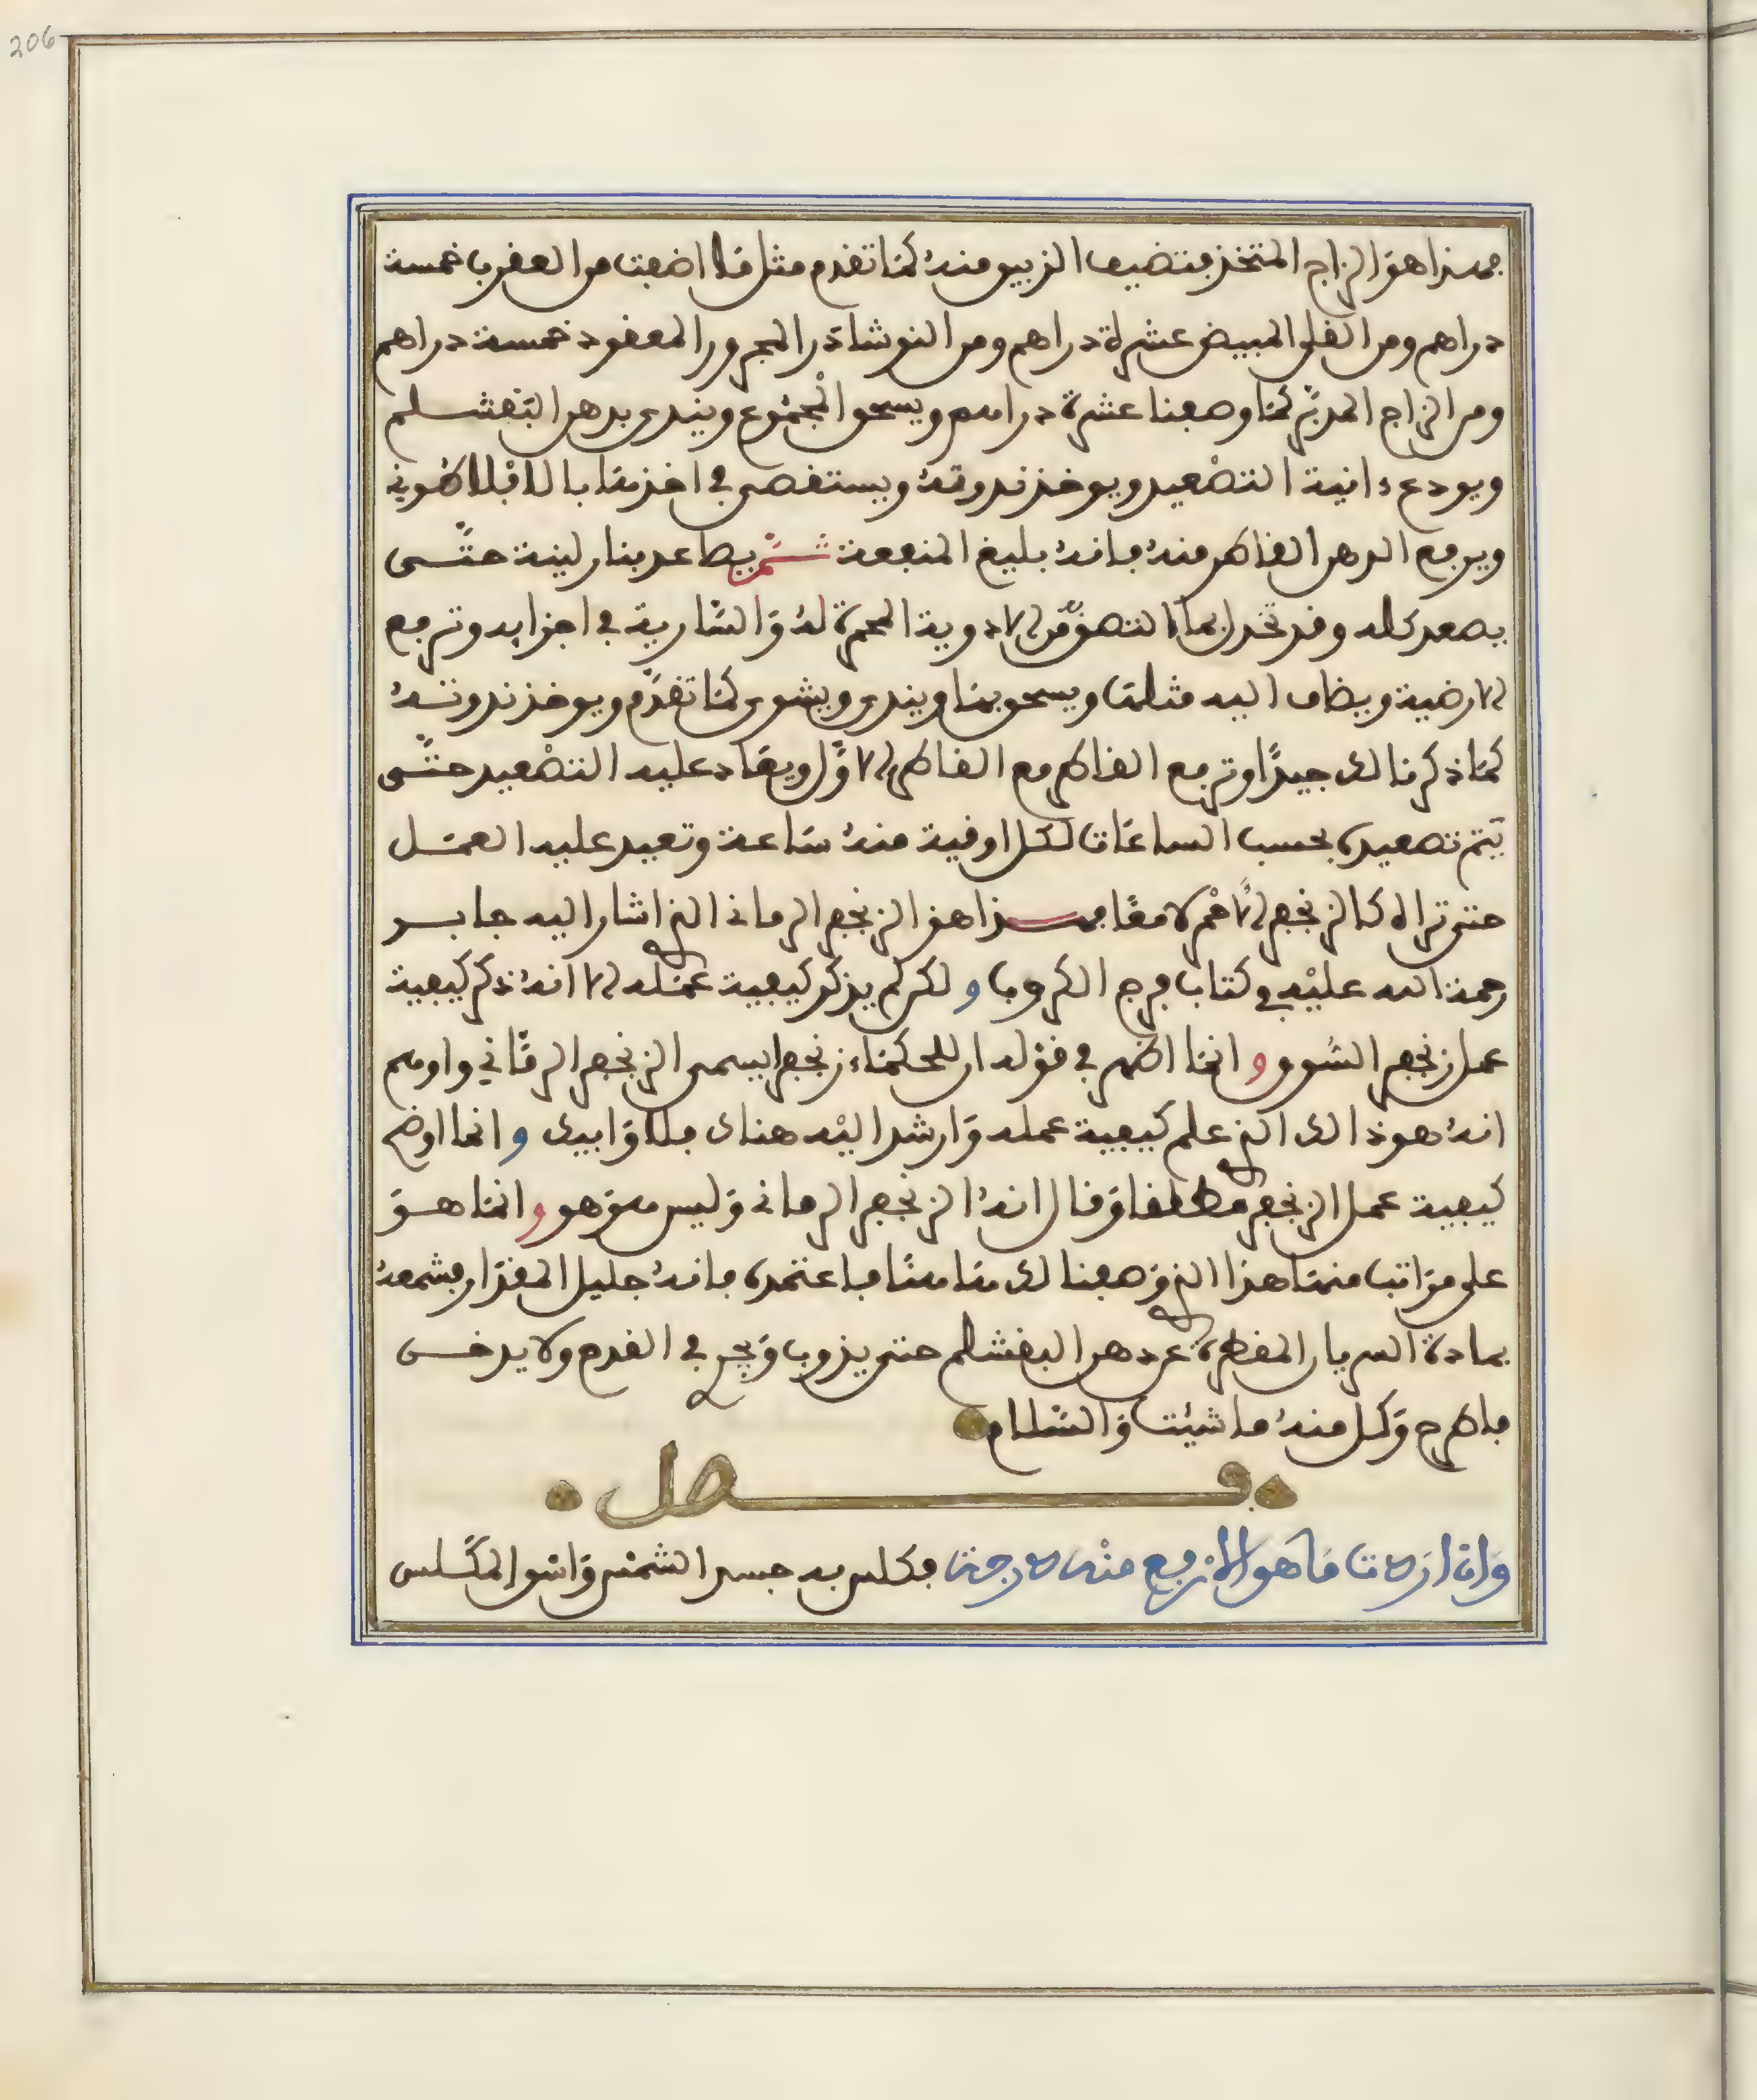 206
فهذا هو الزاج المتخذ فتضيف الزيبق منه كما تقدم مثل ما اضفت من العقرب خمسة
دراهم ومن القلى المبيض عشرة دراهم ومن النوشاذر المحرور المعقود خمسة دراهم
ومن الزاج المدبّر كما وصفنا عشرة دراهم ويسحق المجموع ويندى بدهن البقشلم
ويودع ءانية التصعيد ويوخذ ندوته ويستقصى في اخذها بالافلاطونية
ويرفع الدهن القاطر منه فانه بليغ المنفعة ثم يصاعد بنار لينة حتّى
يصعد كله وقد تخرل الادوية المحمرة له والسارية في اجزايه وترفع
الارضية ويضاف اليه مثلها ويسحق بها ويندى ويشوى كما تقدّم ويوخذ ندوته
كما ذكرنا لك جيدًا وترفع القاطر مع القاطر الاوّل ويعاد عليه التصعيد حتّى
يتم تصعيده بحسب الساعات لكل اوقية منه ساعة وتعيد عليه العمل
حتى تراه كالزنجفر الاحمر لامعًا فهذا هو الزنجفر الرماني الذي اشار اليه جابر
رحمة الله عليه في كتاب فرج الكروب و لكن لم يذكر كيفية عمله الا انه ذكر كيفية
عمل زنجفر السوق و انما اظهر في قوله ان للحكماء زنجفرا يسمى الزنجفر الرمّاني واوهم
انه هو ذاك الذي علم كيفية عمله وارشد اليه هناك فلا وابيك و انما اوضح
كيفية عمل الزنجفر مطلقا وقال انه الزنجفر الرماني وليس هو هو و انما هو
على مراتب منها هذا الذي وصفنا لك هاهنا فاعتمده فانه جليل المقدار فشمعه
بمادة السريان المقطرة عن دهن البقشلم حتى يذوب ويجري في القدح ولا يدخن
فاطرح وكل منه ما شيت والسلام
فصل
وان اردت ما هو الارفع منه درجة فكلس به جسد الشمس واسق المكلّس